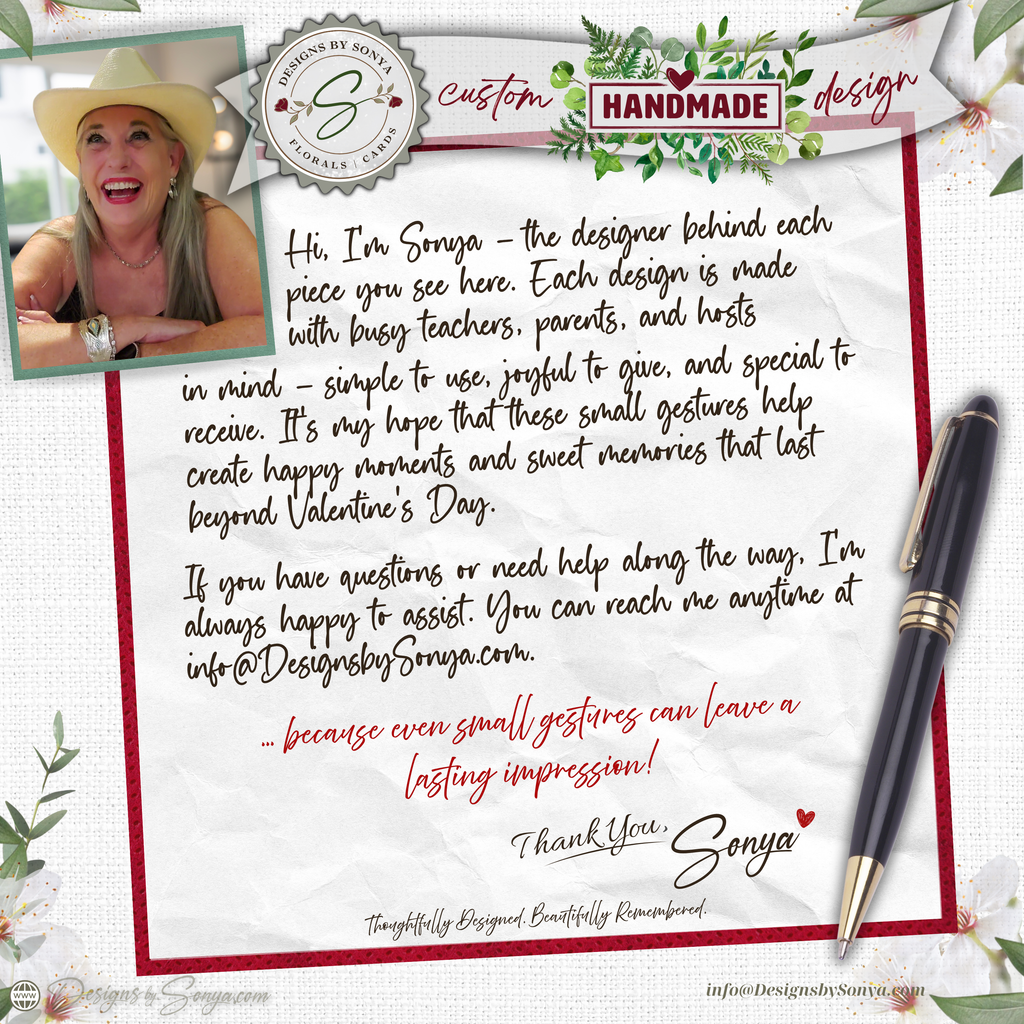 DESIGNS BY SONYA
S
FLORALS | CARDS
custom
HANDMADE
design
Hi, I'm Sonya – the designer behind each
piece you see here. Each design is made
with busy teachers, parents, and hosts
in mind – simple to use, joyful to give, and special to
receive. It's my hope that these small gestures help
create happy moments and sweet memories that last
beyond Valentine's Day.
If you have questions or need help along the way, I'm
always happy to assist. You can reach me anytime at
info@DesignsbySonya.com.
... because even small gestures can leave a
lasting impression!
Thank You,
Sonya
Thoughtfully Designed. Beautifully Remembered.
WWW
DesignsbySonya.com
info@DesignsbySonya.com